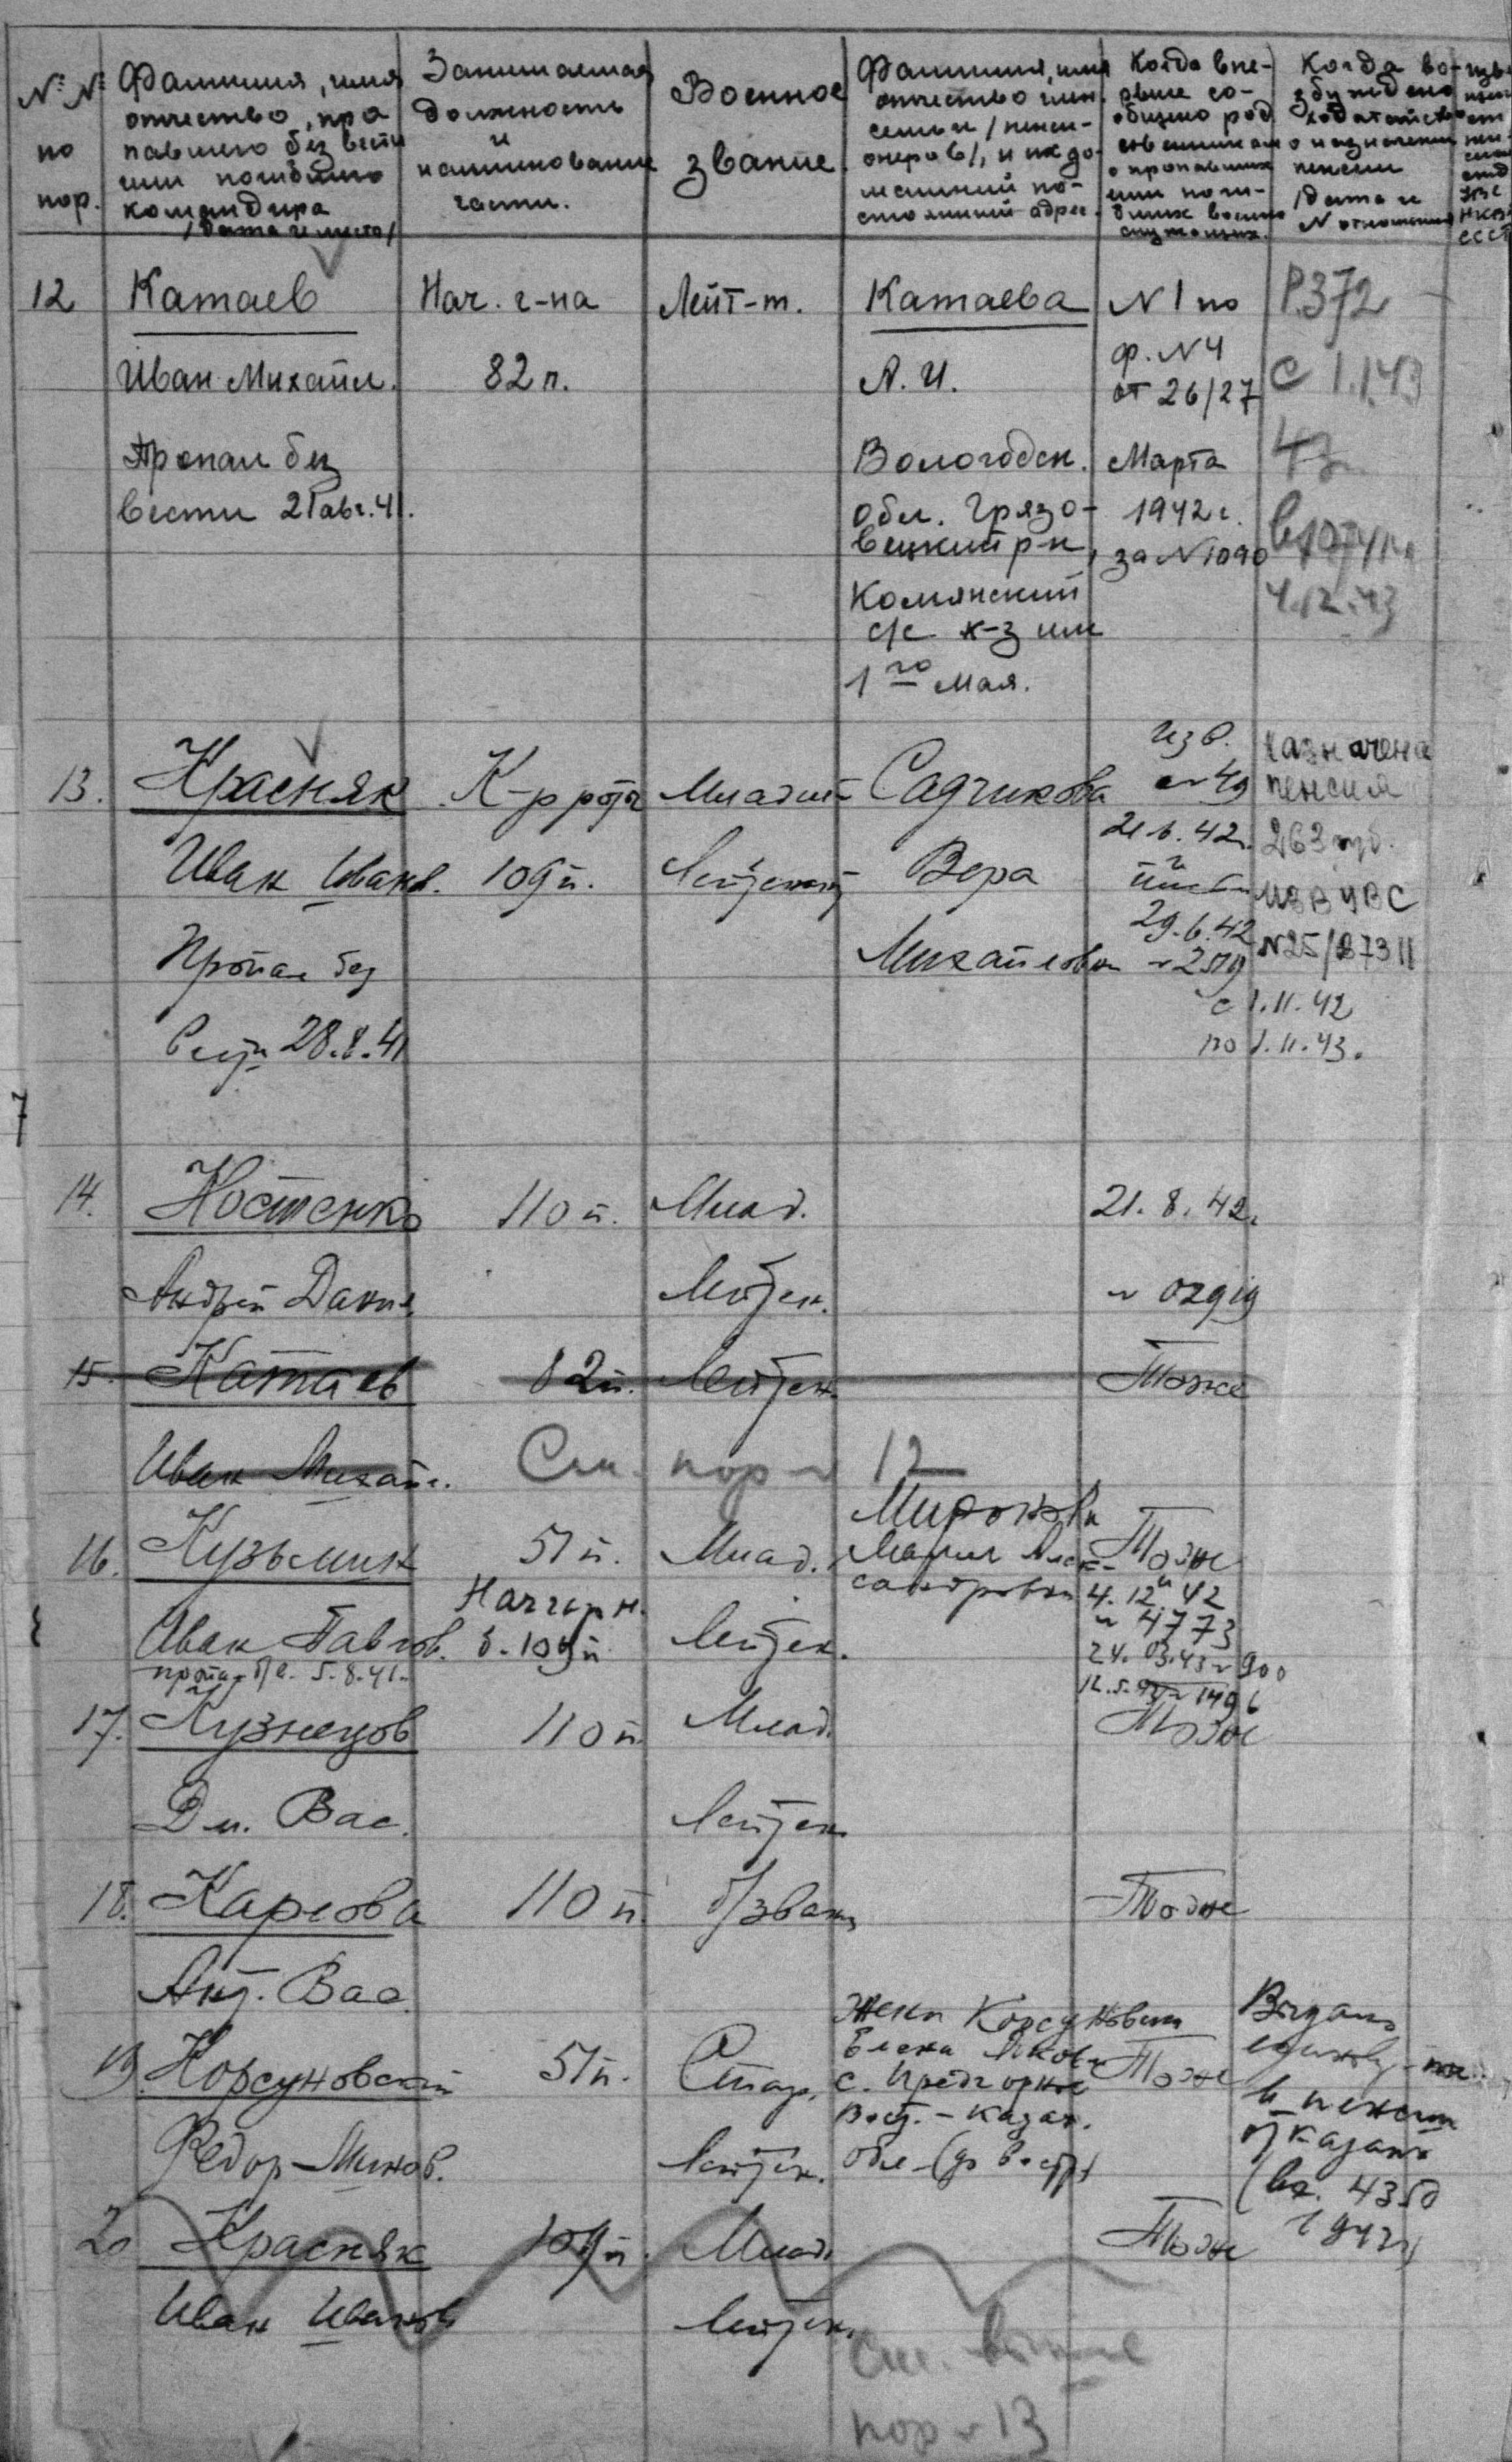 №№ по пор.
Фамилия, имя
отчество, про
павшего без вести
или погибшего
командира
/дата и место/
Занимаемая
должность
и
наименование
части.
Военное
звание
Фамилия, имя
отчество член.
семьи /пенси-
онеров/, и их до-
машний по-
стоянный адрес.
Когда впе-
рвые со-
общено род
ственникам
о пропавших
или поги-
бших военно
служащих.
Когда во-
збуждено
ходатайство
о назначении
пенсии
/дата и
N отношения
12
Катаев
Иван Михайл.
Пропал без
вести 21 авг. 41.
Нач. г-на
82 п.
Лейт-т.
Катаева
А. И.
Вологодск.
обл. Грязо-
вецкий р-н,
Комянский
с/с к-з им
1го Мая.
N 1 по
ф. N 4
от 26/27
Марта
1942 г.
за N 1090
Р. 372
с 1.1.43
4.12.43
13.
Красняк
Иван Иванв.
Пропал без
вести 28.8.41
К-р роты
109 п.
Младший
Лейтенант
Садчикова
Вера
Михайловна
изв.
N 49
21.6.42г.
и
29.6.42
N 2519
назначена
пенсия
263 руб.
изв УВС
N25/87311
с 1.11.42
по 1.11.43.
14.
Костенко
Андрей Данил.
110 п.
Млад.
Лейтен.
21.8.42г
N 02919
15.
Катаев
Иван Михайл.
82 п.
Лейтен.
Тоже
См. пор N 12
16.
Кузьмин
Иван Павлов.
пропал б/в. 5.8.41г.
51 п.
109 п
Млад.
Лейтен.
Миронова
Мария Алек-
сандровна
Тоже
и
4.12.42
N 4773
24.03.43 N 900
12.5.43 N 1496
17.
Кузнецов
Дм. Вас.
110 п.
Млад.
Лейтен
Тоже
18.
Карлова
Ант. Вас.
110 п.
б/зван
Тоже
19
Корсуновский
Федор Минов.
51 п.
Стар.
Лейтен.
Жена Корсуновская
Елена Яковл
с. Предгорное
Вост.-Казах.
обл
Тоже
Выдано
единов.
в пенсии
отказано
(вх. 4350
1942г)
20
Красняк
Иван Иванов
109 п.
Млад.
Лейтен.
Тоже
См. выше
пор N 13